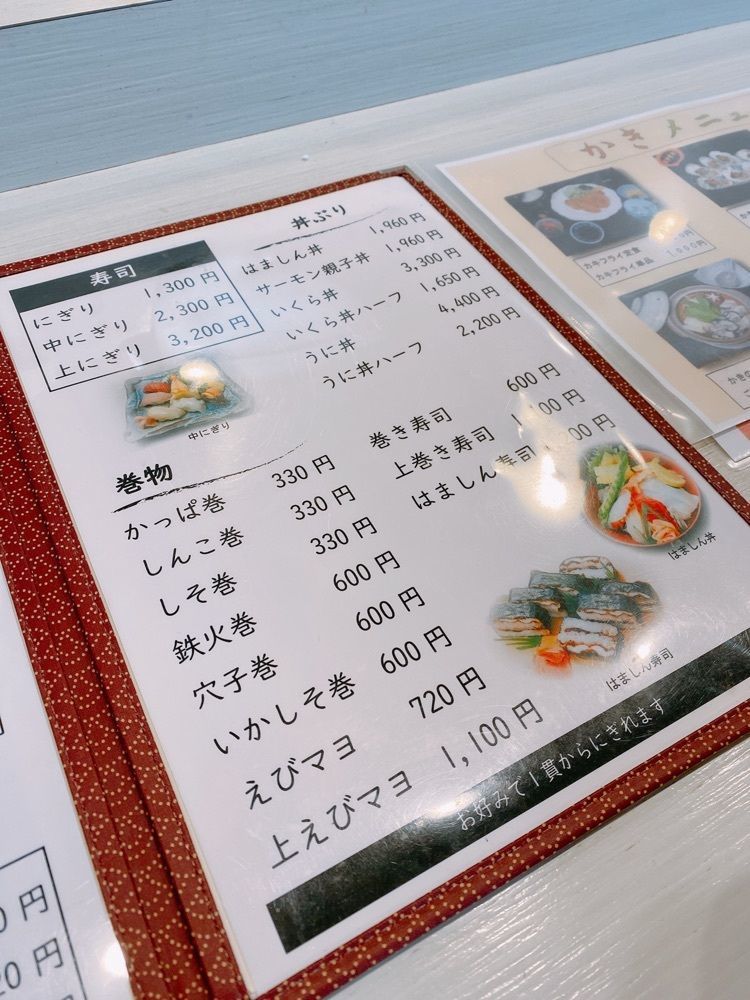 寿司
にぎり 1,300円
中にぎり 2,300円
上にぎり 3,200円
中にぎり
丼ぶり
はましん丼 1,960円
サーモン親子丼 1,960円
いくら丼 3,300円
いくら丼ハーフ 1,650円
うに丼 4,400円
うに丼ハーフ 2,200円
巻物
かっぱ巻 330円
しんこ巻 330円
しそ巻 330円
鉄火巻 600円
穴子巻 600円
いかしそ巻 600円
えびマヨ 720円
上えびマヨ 1,100円
巻き寿司 600円
上巻き寿司
はましん寿司
はましん丼
はましん寿司
お好みで1貫からにぎれます
かきメニュ
カキフライ定食
カキフライ単品
かきの
0円
20円